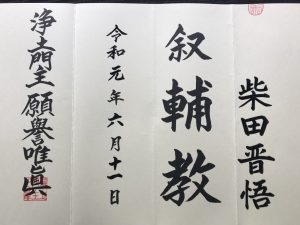 柴田晋悟
叙輔教
令和元年六月十一日
浄土門主願譽唯眞